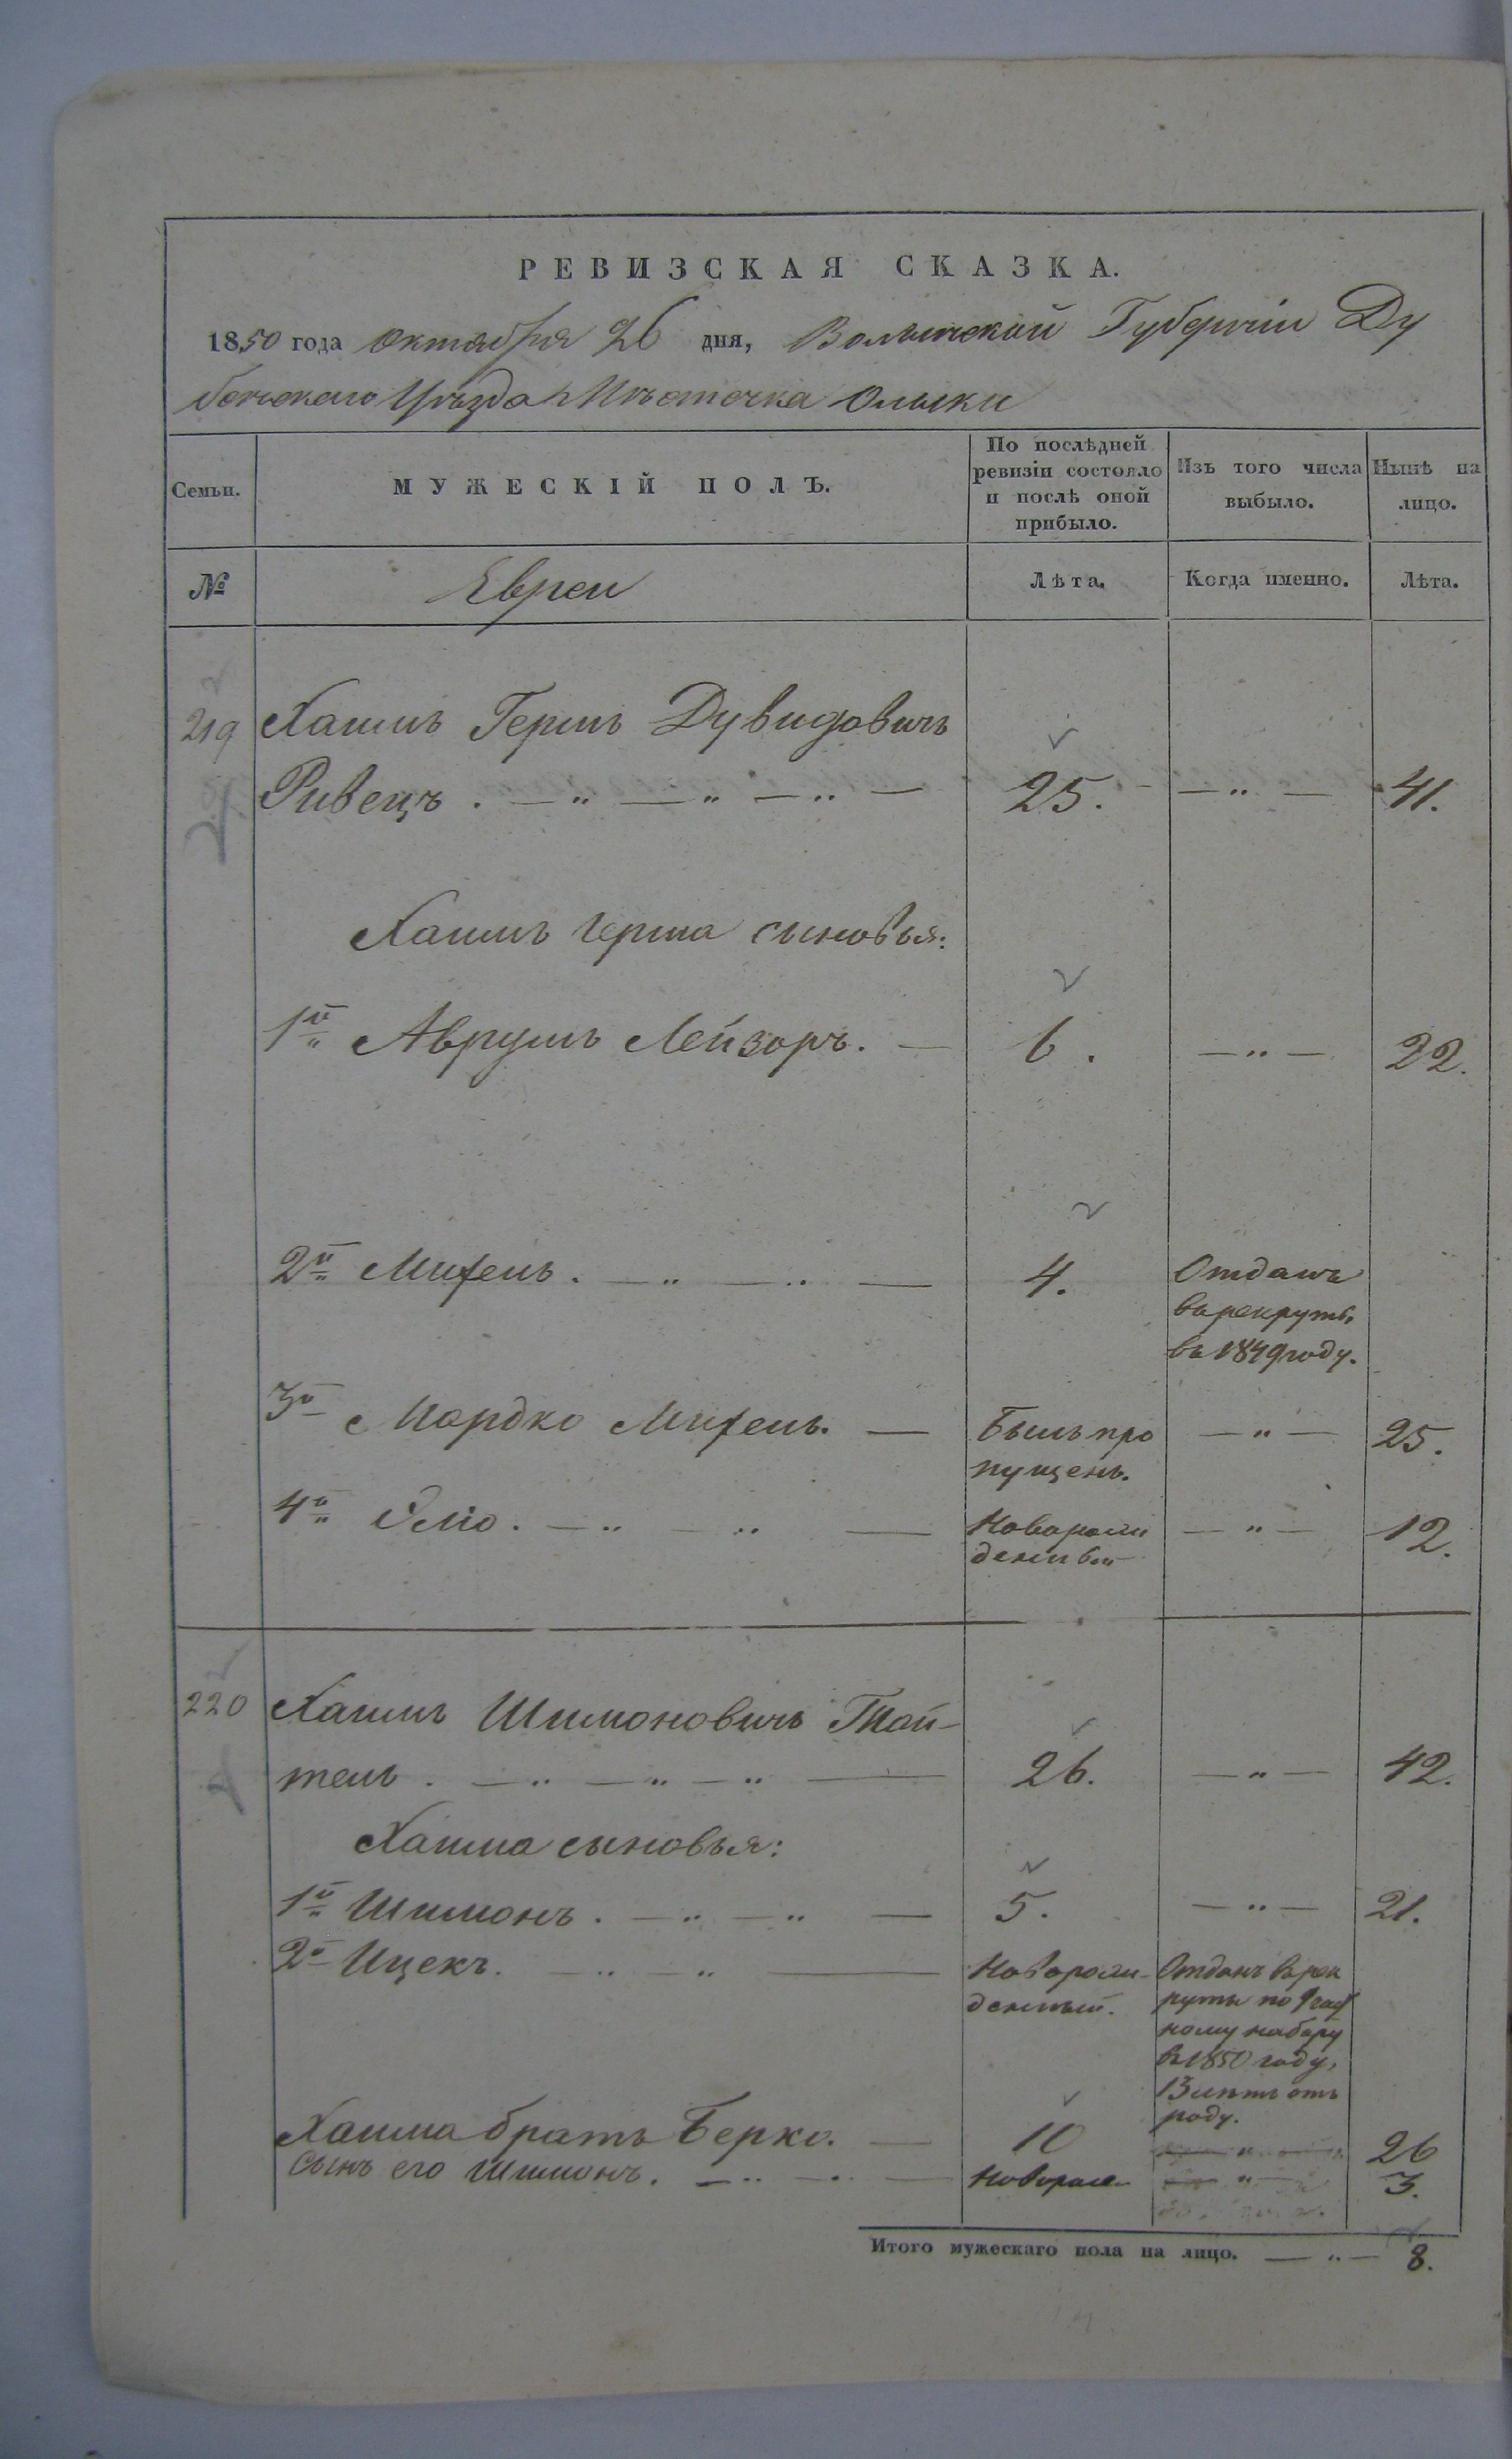 РЕВИЗСКАЯ СКАЗКА.
1850 года Октября 26 дня, Волынской Губерніи Ду
бенскаго Уѣзда Мѣстечка Олыки
Семьи.
МУЖЕСКІЙ ПОЛЪ.
По послѣдней
ревизіи состояло
и послѣ оной
прибыло.
Изъ того числа
выбыло.
Нынѣ на
лицо.
№
Евреи
Лѣта.
Когда именно.
Лѣта.
219 Хаимъ Гершъ Дувидовичъ
Ривецъ. — " — " — " — 25. — " — 41.
Хаимъ Герша сыновья:
1й Аврумъ Лейзоръ. — 6. — " — 22.
2й Михель. — " — " — 4. Отданъ
въ рекруты
въ 1849 году.
3й Мордко Михель. — Былъ про — " — 25.
пущенъ.
4й — " — " — Новорож — " — 12.
денный
220 Хаимъ Шимоновичъ Тай-
тель. — " — " — " — 26. — " — 42.
Хаима сыновья:
1й Шимонъ. — " — " — 5. — " — 21.
2й Ицекъ. — " — " — Новорож- Отданъ в рек
денный. руты по
ному набору
в 1850 году,
13 лѣтъ отъ
роду.
Хаима братъ Берко. — 10 " 26
Сынъ его Шимонъ. — " — " — Новорож- " 3.
Итого мужескаго пола на лицо. — " — 8.